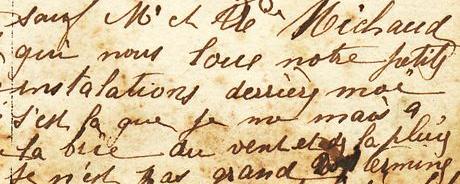 sauf Mr et Me Michaud
qui nous loue notre petits
instalations derrière moi
s'est la que je me mais a
la bise du vent et de la pluie
se n'est pas grand